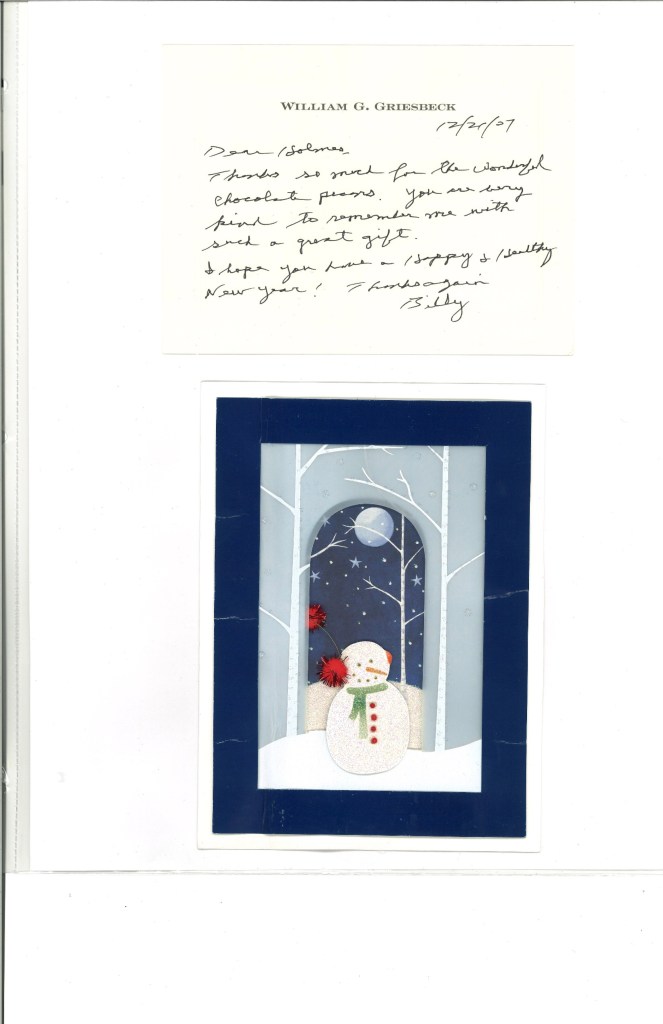 WILLIAM G. GRIESBECK
12/21/07
Dear Holmes,
Thanks so much for the wonderful
chocolate pecans. You are very
kind to remember me with
such a great gift.
I hope you have a Happy & Healthy
New Year! Thanks again
Billy